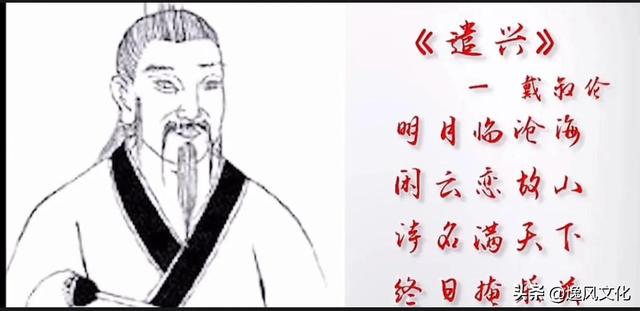 《遣兴》
一 戴叔伦
明月临沧海
闲云恋故山
诗名满天下
终日掩
头条 @逸风文化